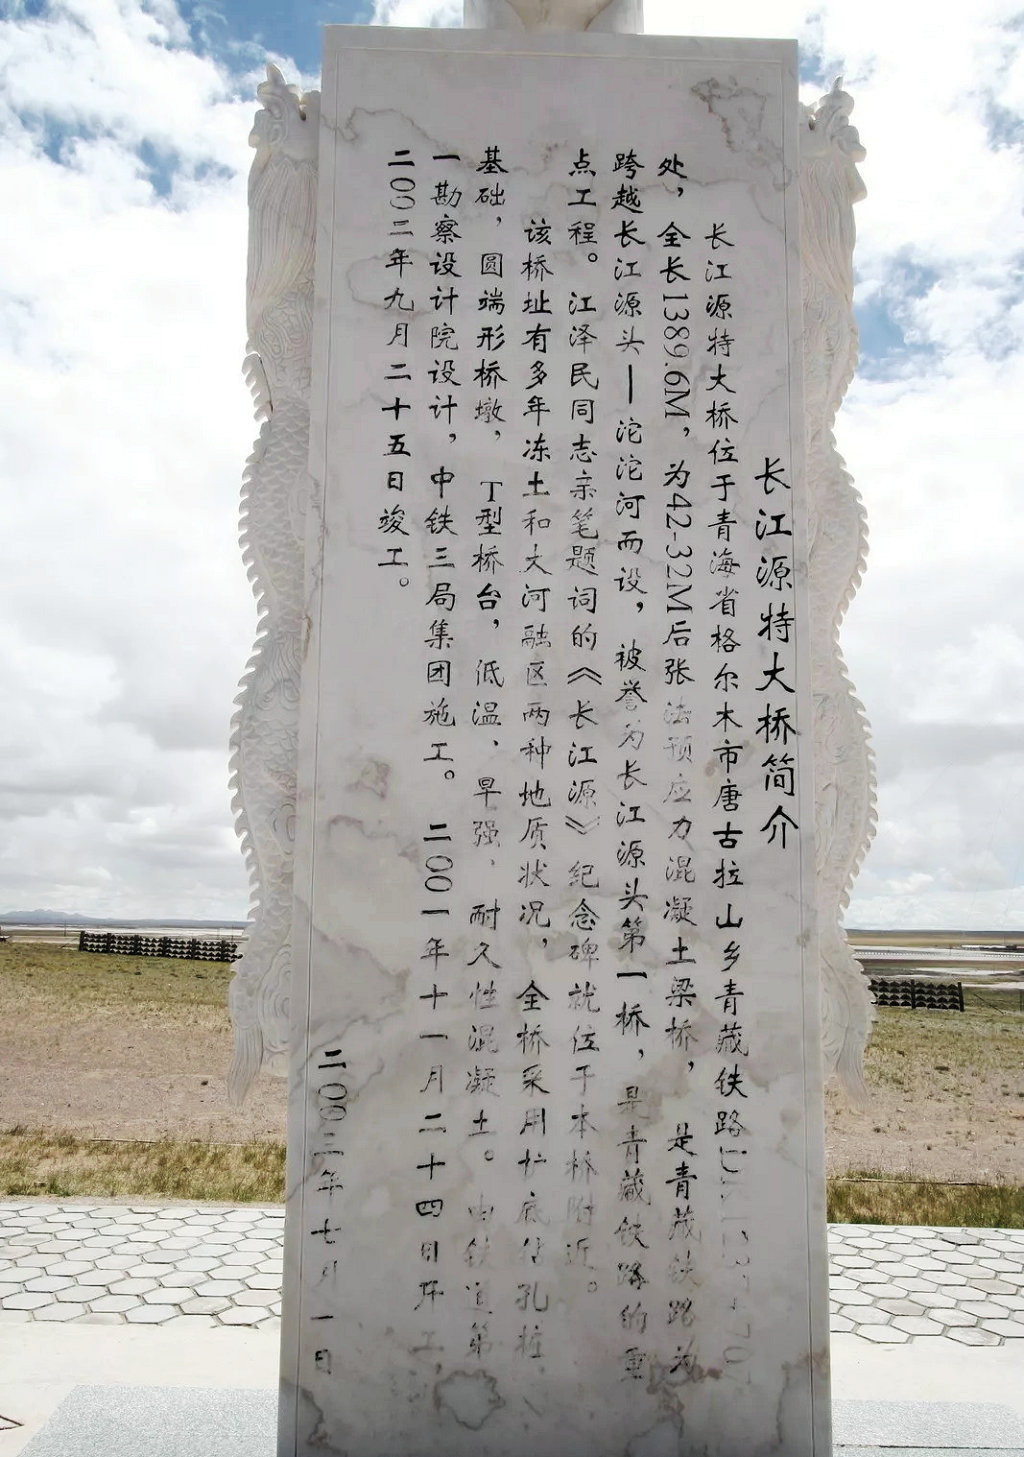 长江源特大桥简介
长江源特大桥位于青海省格尔木市唐古拉山乡青藏铁路
处，全长1389.6M，为42-32M后张法预应力混凝土梁桥，是青藏铁路为
跨越长江源头—沱沱河而设，被誉为长江源头第一桥，是青藏铁路的重
点工程。江泽民同志亲笔题词的《长江源》纪念碑就位于本桥附近。
该桥址有多年冻土和大河融区两种地质状况，全桥采用扩底钻孔桩
基础，圆端形桥墩，T型桥台，低温、早强、耐久性混凝土。由铁道第
一勘察设计院设计，中铁三局集团施工。二〇〇一年十一月二十四日开工，
二〇〇二年九月二十五日竣工。
二〇〇三年七月一日